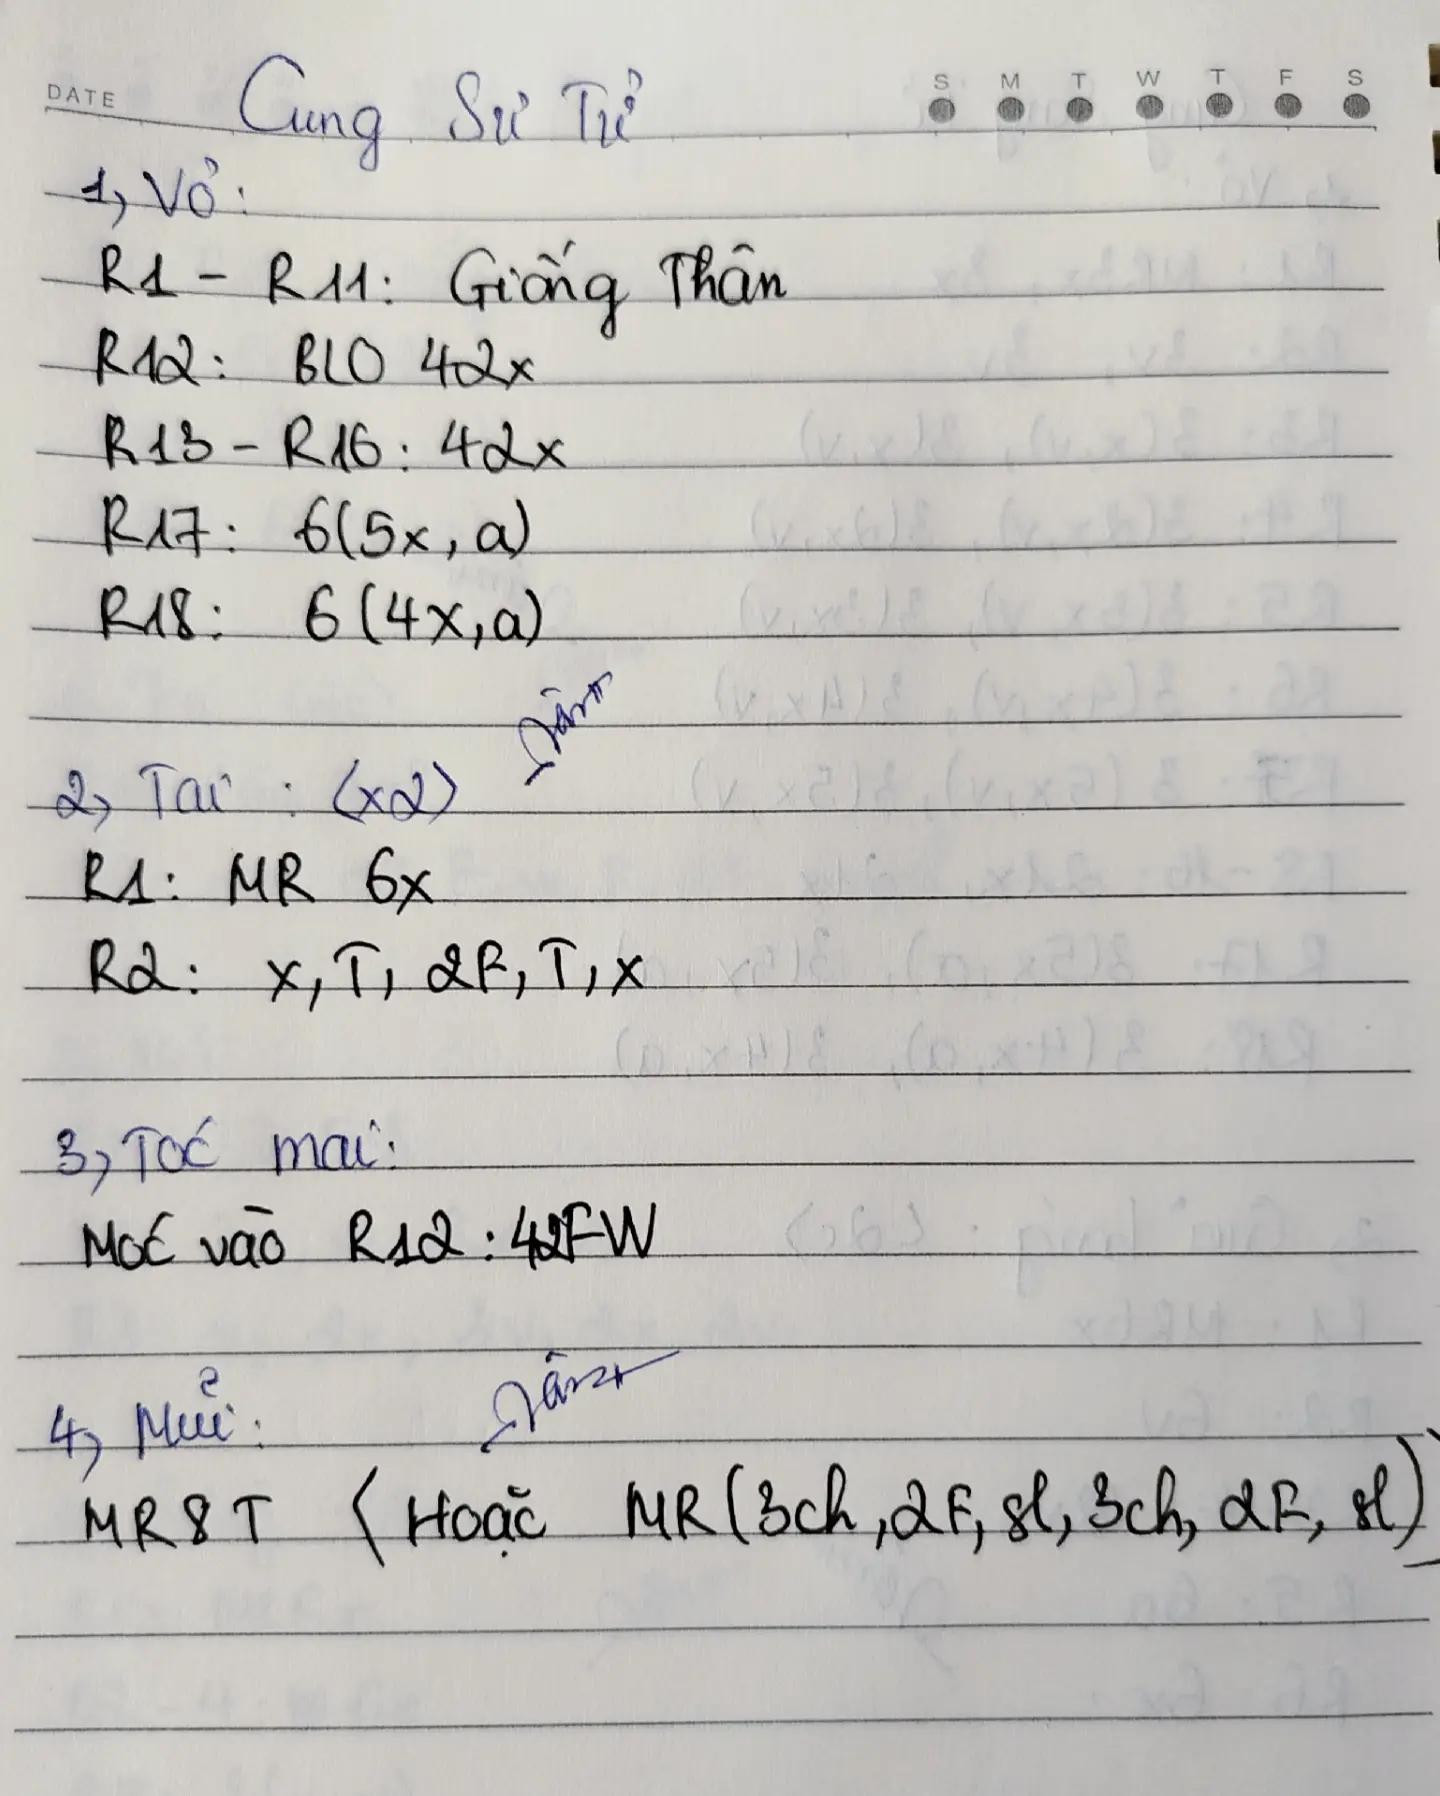 DATE Cung Sư Tử S M T W T F S
1, Vỏ:
R1 - R11: Giống Thân
R12: BLO 42x
R13 - R16: 42x
R17: 6(5x, a)
R18: 6(4x, a)
2, Tai: (x2)
R1: MR 6x
R2: x, T, 2F, T, x
3, Tóc mai:
Móc vào R12: 42FW
4, Mũi:
MR8T (Hoặc MR(3ch, 2F, sl, 3ch, 2F, sl)